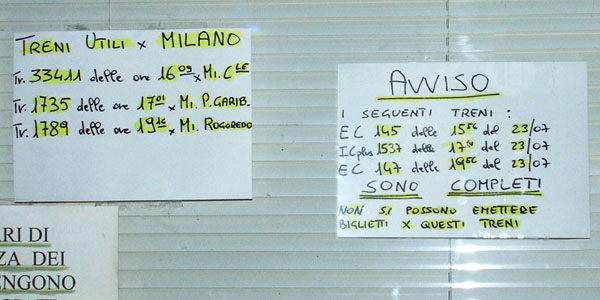 TRENI UTILI x MILANO
Tr. 33411 delle ore 16 09 x MI. C LE
Tr. 1735 delle ore 17 01 x MI. P. GARIB.
Tr. 1789 delle ore 19 16 x MI. ROGOREDO
AVVISO
I SEGUENTI TRENI :
EC 145 delle 15 56 del 23/07
ICplus 1537 delle del 23/07
EC 147 delle 19 56 del 23/07
SONO COMPLETI
NON SI POSSONO EMETTERE
BIGLIETTI x QUESTI TRENI
ARI DI
ZA DEI
ENGONO